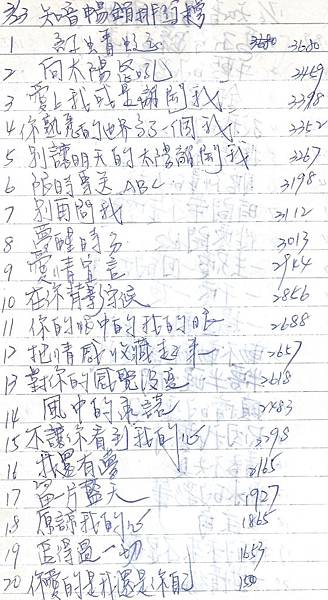 3/3 知音暢銷排行榜
1 紅蜻蜓 3680 3680
2 向太陽怒吼 3459
3 愛上我或是離開我 3398
4 你熟悉的世界多了一個我 3352
5 別讓明天的太陽離開我 3267
6 限時專送ABC 3198
7 別再問我 3112
8 夢醒時分 3013
9 愛情宣言 2944
10 在你背影守候 2856
11 你的眼中的我的眼 2688
12 把情感收藏起來 2657
13 對你的感覺沒變 2618
14 風中的承諾 2483
15 不讓你看到我的心 2398
16 我還有夢 2165
17 留一片藍天 1927
18 原諒我的心 1865
19 值得這一切 1653
20 你愛的是我還是你自己 1500